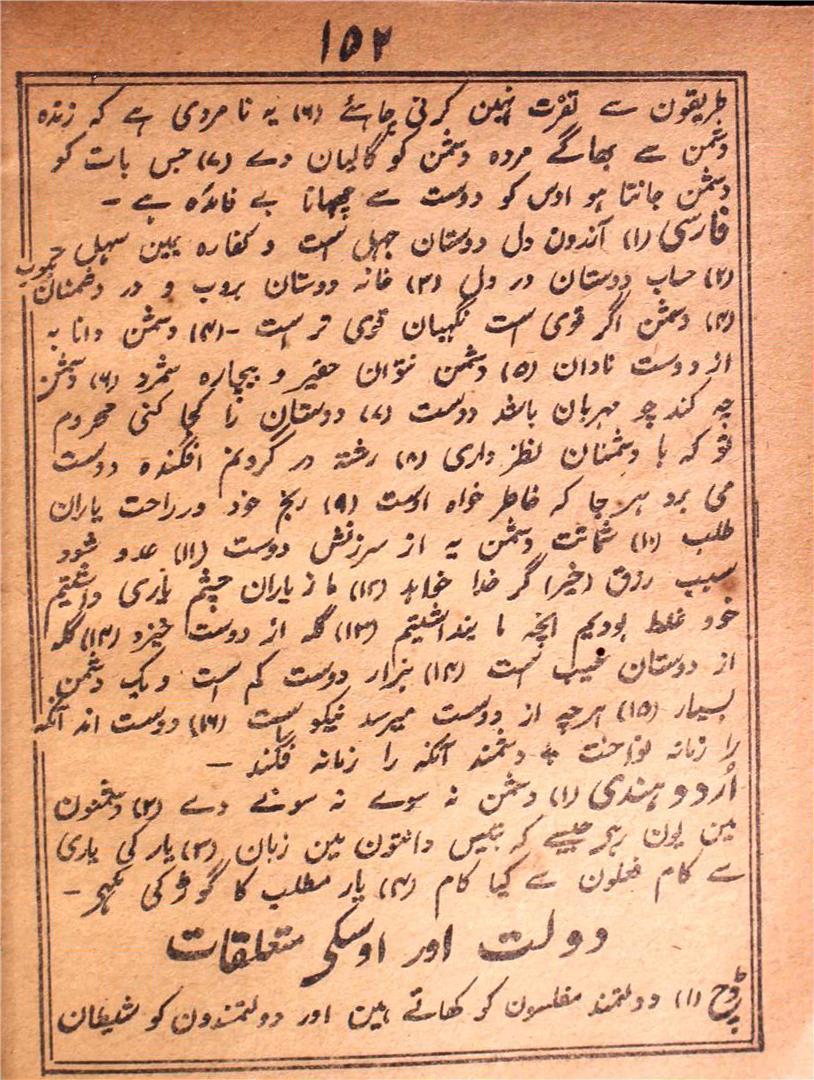 ۱۵۲
طریقون سے نفرت نہین کرنی چاہئے (۶) یہ نا مردی ہے کہ زندہ
دشمن سے بھاگے مردہ دشمن کو گالیان دے (۷) جس بات کو
دشمن جانتا ہو اوس کو دوست سے چھپانا بے فائدہ ہے -
فارسی (۱) آزردن دل دوستان جہل است و کفارہ یمین سہل
(۲) حساب دوستان در دل (۳) خانہ دوستان بروب و در دشمنان مکوب
(۴) دشمن اگر قوی است نگہبان قوی تر است - (۴) دشمن دانا بہ
از دوست نادان (۵) دشمن نتوان حقیر و بیچارہ شمرد (۶) دشمن
چہ کند چو مہربان باشد دوست (۷) دوستان را کجا کنی محروم
تو کہ با دشمنان نظر داری (۸) رشتہ در گردنم افگندہ دوست
می برد ہر جا کہ خاطر خواہ اوست (۹) رنج خود در راحت یاران
طلب (۱۰) شماتت دشمن بہ از سرزنش دوست (۱۱) عدو شود
سبب رزق (خیر) گر خدا خواہد (۱۲) ما ز یاران چشم یاری داشتیم
خود غلط بودیم انچہ ما پنداشتیم (۱۳) گلہ از دوست خیزد (۱۳) گلہ
از دوستان عیب است (۱۴) ہزار دوست کم است و یک دشمن
بسیار (۱۵) ہرچہ از دوست میرسد نیکوست (۱۶) دوست اند آنکہ
را زمانہ نواخت + دشمند آنکہ را زمانہ فگند -
اُردو ہندی (۱) دشمن نہ سوے نہ سونے دے (۲) دشمنون
مین یون رہے جیسے کہ بتیس دانتون مین زبان (۳) یار کی یاری
سے کام فعلون سے کیا کام (۴) یار مطلب کا گوڑ کی
دولت اور اوسکی متعلقات
(۱) دولتمند مفلسون کو کھاتے ہین اور دولتمندون کو شیطان